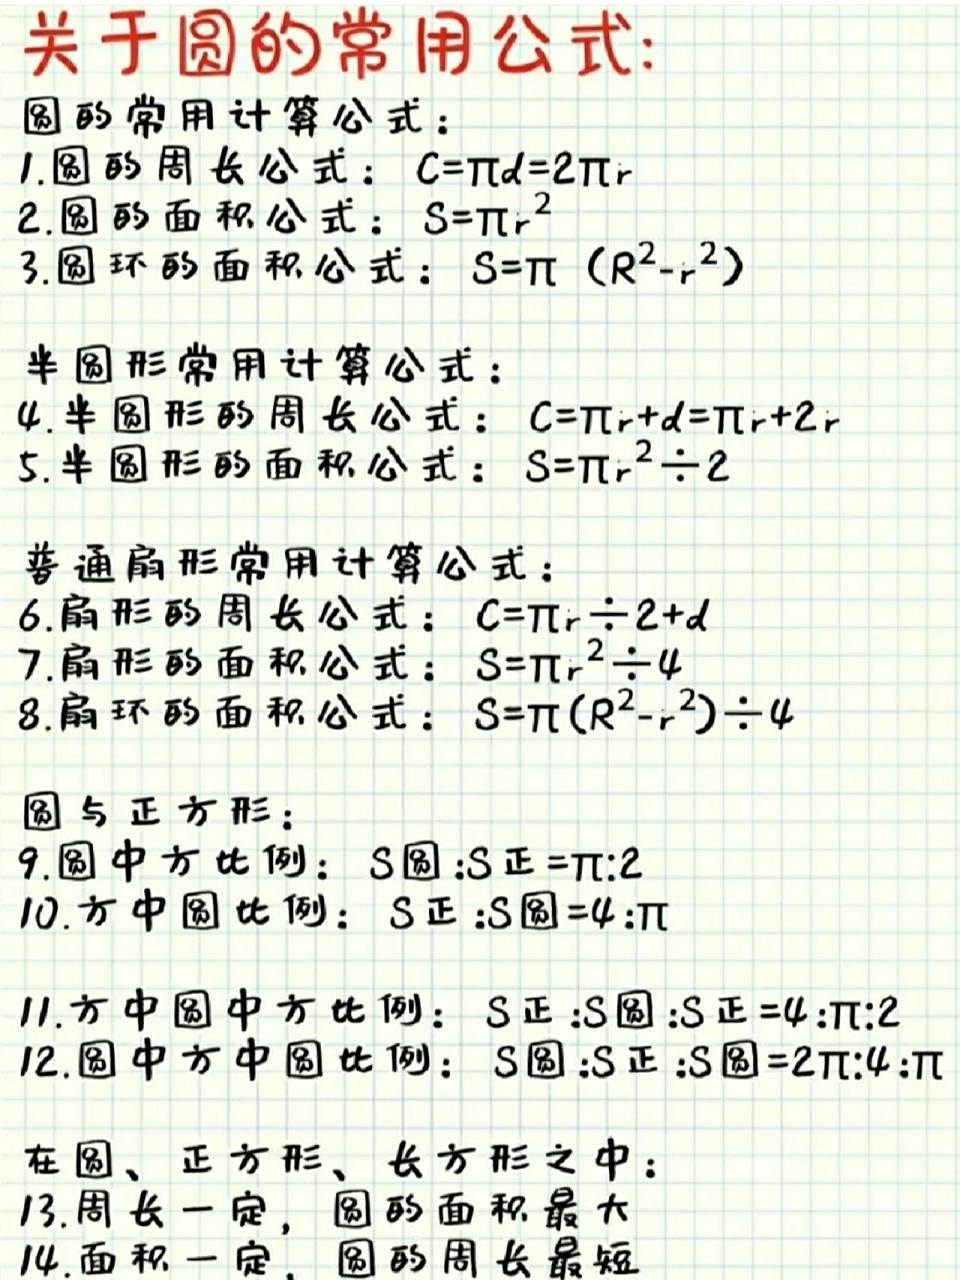 关于圆的常用公式:
圆的常用计算公式:
1.圆的周长公式: C=πd=2πr
2.圆的面积公式: S=πr²
3.圆环的面积公式: S=π（R²-r²）
半圆形常用计算公式:
4.半圆形的周长公式: C=πr+d=πr+2r
5.半圆形的面积公式: S=πr²÷2
普通扇形常用计算公式:
6.扇形的周长公式: C=πr÷2+d
7.扇形的面积公式: S=πr²÷4
8.扇环的面积公式: S=π(R²-r²)÷4
圆与正方形:
9.圆中方比例: S圆:S正=π:2
10.方中圆比例: S正:S圆=4:π
11.方中圆中方比例: S正:S圆:S正=4:π:2
12.圆中方中圆比例: S圆:S正:S圆=2π:4:π
在圆、正方形、长方形之中:
13.周长一定, 圆的面积最大
14.面积一定, 圆的周长最短